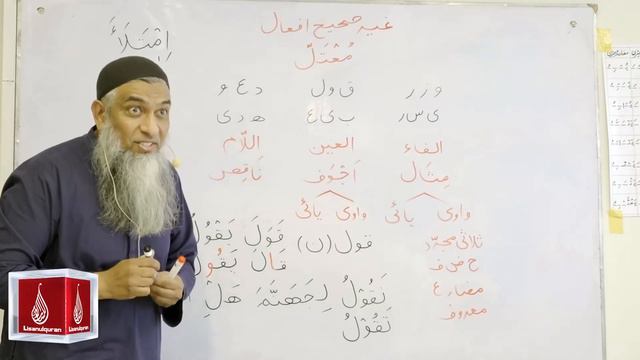 غیر صحیح افعال
مُعْتَلّ
اِمْتَلَأَ
و ز ر    ق و ل    د ع و
ی س ر    ب ی ع    ه د ی
الفاء    العین    اللّام
مِثَال    اَجْوَف    نَاقِص
واوی    یائی    واوی    یائی
ثلاثی مجرّد    قول (ن)    قَوَلَ يَقْوُلُ
ح ض ف    قَالَ يَقُولُ
مضارع    نَقُوْلُ لِجَهَنَّمَ هَلِ
معروف    تَقُوْلُ
Lisanulquran
Lisanulquran